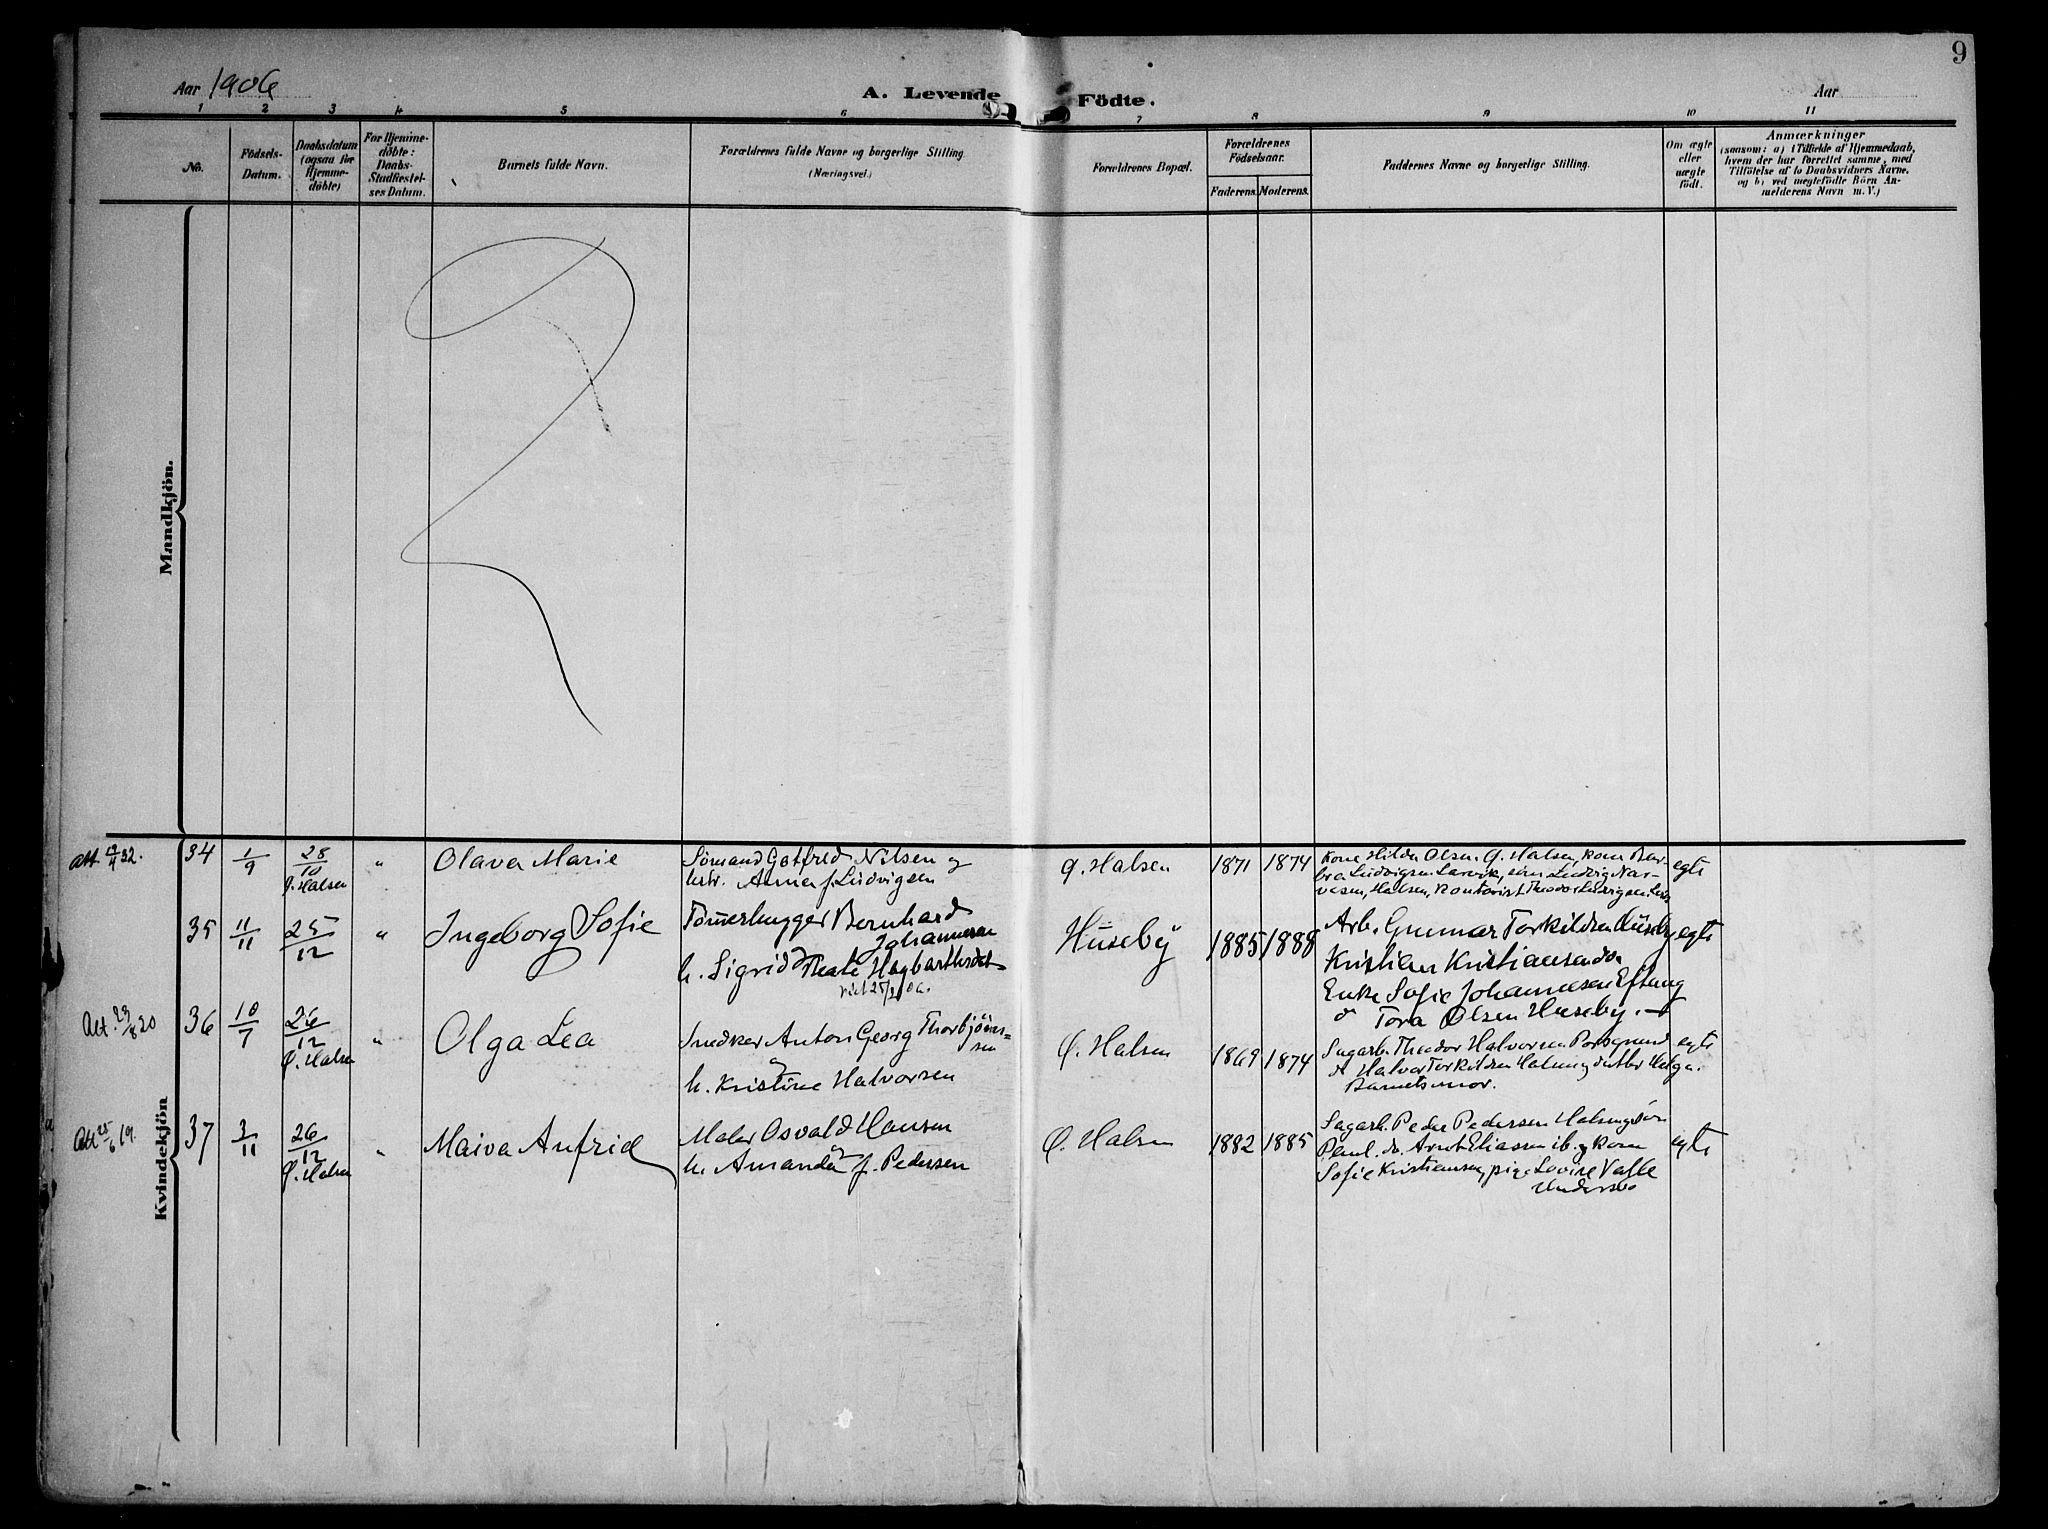 9
Aar 1906
A. Levende Födte.
Aar
1 2 3 4 5 6 7 8 9 10 11
No.
Födsels-
Datum.
Daabsdatum
(ogsaa for
Hjemme-
döbte)
For Hjemme-
döbte:
Daabs-
Stadfæstel-
ses Datum.
Barnets fulde Navn.
Forældrenes fulde Navne og borgerlige Stilling
(Næringsvei.)
Forældrenes Bopæl.
Forældrenes
Födselsaar.
Faderens. Moderens.
Faddernes Navne og borgerlige Stilling.
Om ægte
eller
uægte
født.
Anmærkninger
(saasom: a) i Tilfælde af Hjemmedaab,
hvem der har forrettet samme, med
Tilföielse af to Daabsvidners Navne,
og b) ved uegtefödte Börn An-
melderens Navn m. V.)
Mandkjön.
Kvindekjön
att 32.
34 1/9 28/10 " Olava Marie
Ö. Halsen
Sömand Gotfred Nilsen og
hstr. Anna f. Ludvigsen
Ö. Halsen 1871 1874
Kone Hilda Olsen Ö. Halsen, kone Bar-
bra Ludvigsen Larvik, Ludvig Nar-
vesen, Halsen, Kontorist Theodor Ludvigsen
egte
35 11/11 25/12 " Ingeborg Sofie
Tömerhugger Bernhard
Johannesen
h. Sigrid Thea
viet 25/2 06.
Huseby 1885 1888
Arb. Gunnar Torkildsen Huseby
Kristian Kristiansen do
Enke Sofie Johannesen Eftang
o Tora Olsen Huseby.
egte
Att. 23/8 20
36 10/7 26/12 " Olga Lea
Ö. Halsen
Snedker Anton Georg Thorbjörn-
sen
h. Kristine Halvorsen
Ö. Halsen 1869 1874
Sagarb. Theodor Halvorsen Porsgrund
Halvor Torkildsen Halsen og datter Helga.
Barnets mor.
egte
Att 25/6 19.
37 3/11 26/12 " Maiva Anfrid
Ö. Halsen
Maler Osvald Hansen
h. Amanda f. Pedersen
Ö. Halsen 1882 1885
Sagarb. Peder Pedersen Halsen og sön
Paul. do. Arnt Eliassen ib. og kone
Sofie Kristiansen, pige Lovise Valle
Undersbo
egte